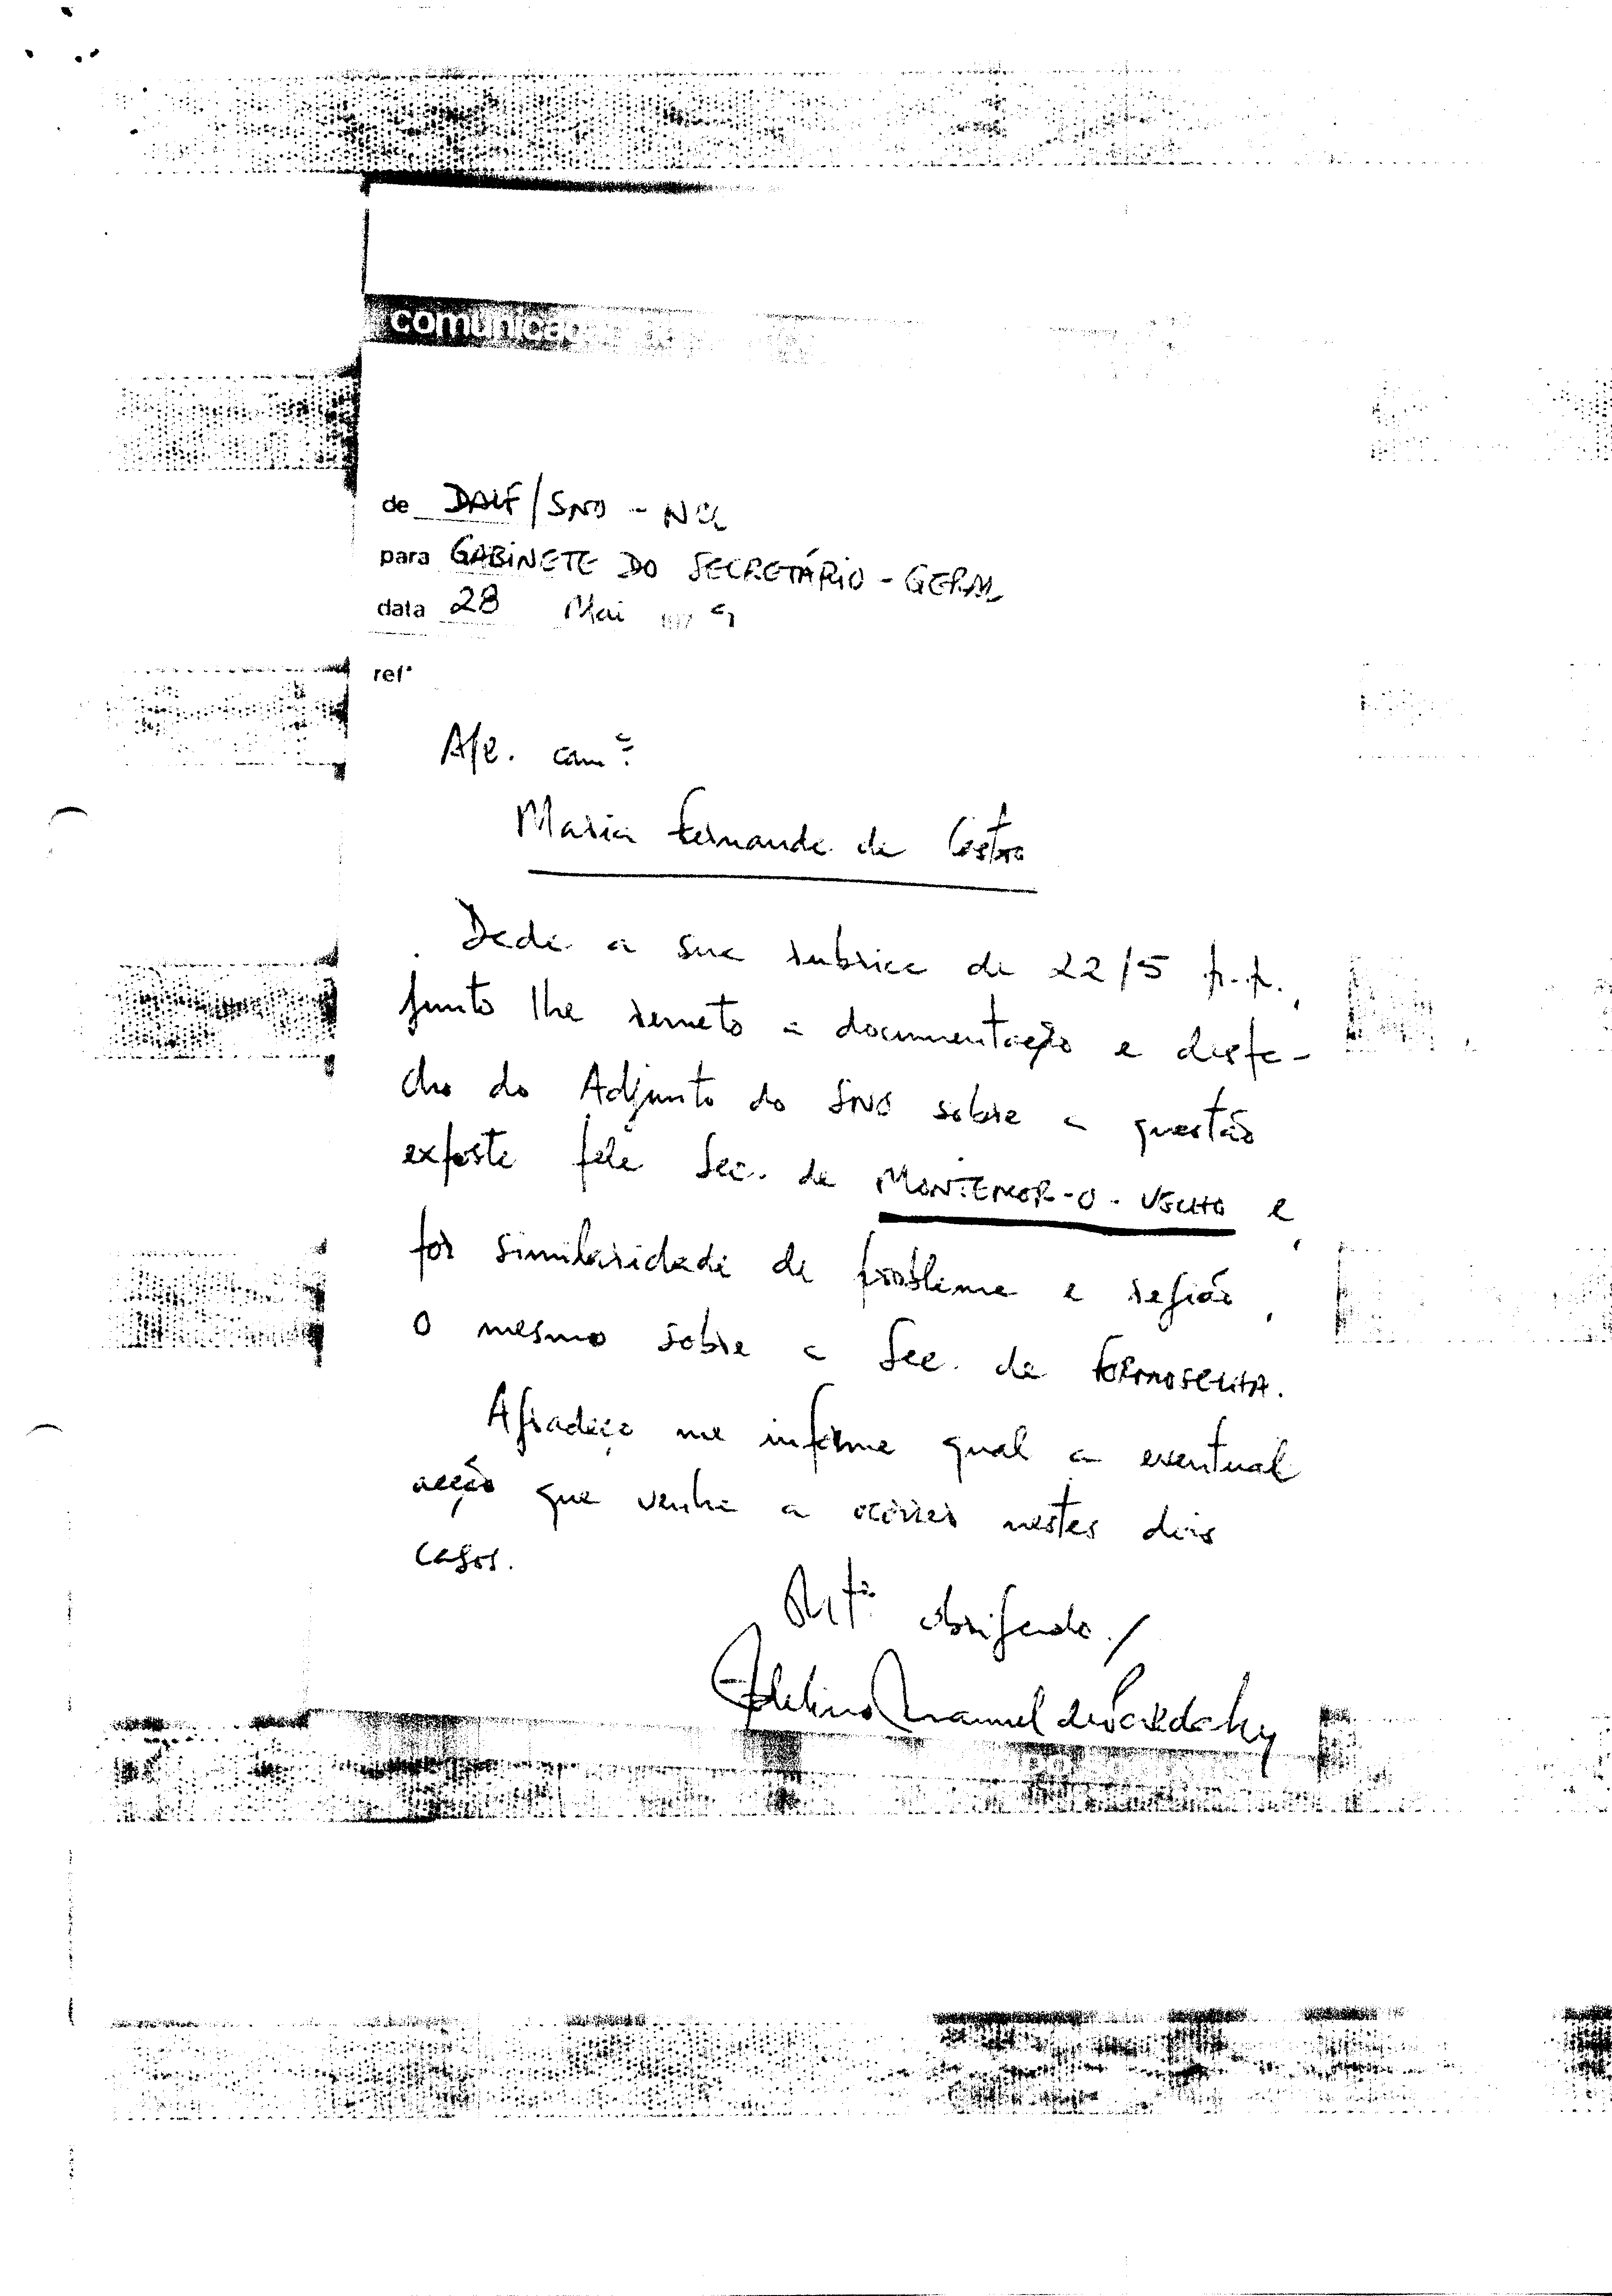 comunicação
de DALF/SNO - NCL
para GABINETE DO SECRETÁRIO-GERAL
data 28 Mai 1979
refª
A/c. camª
Maria Fernanda de Castro
Dada a sua rubrica de 22/5 p.p.,
junto lhe remeto a documentação e despa-
cho do Adjunto do SNO sobre a questão
exposta pela Sec. de MONTEMOR-O-VELHO e,
por similaridade de problema e região,
o mesmo sobre a Sec. de FORMOSELHA.
Agradeço me informe qual a eventual
acção que venha a ocorrer nestes dois
casos.
Mtº obrigado./
Manuel